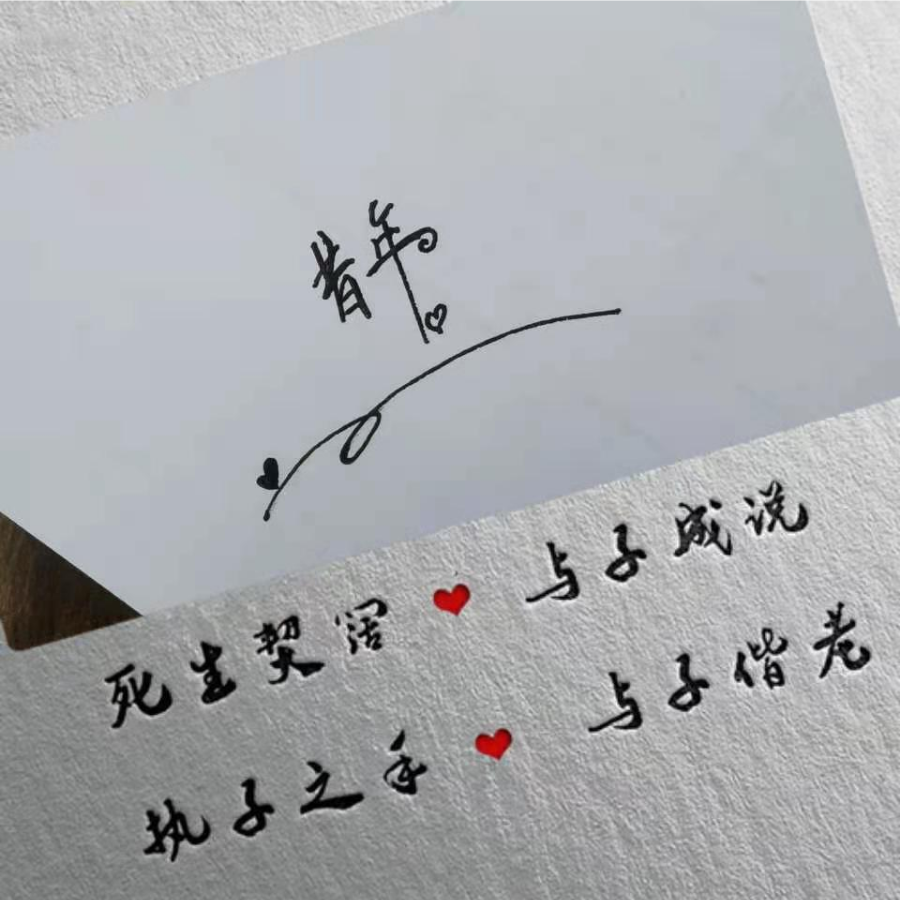 昔年
死生契阔 ❤ 与子成说
执子之手 ❤ 与子偕老